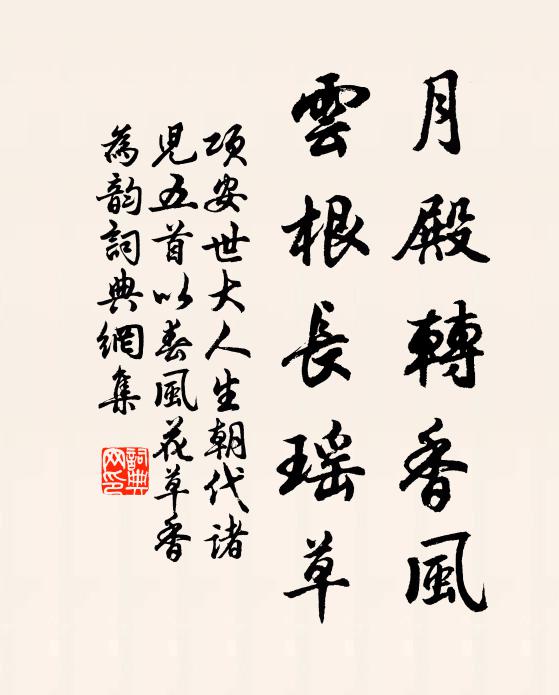 月殿轉香風
雲根長瑶草
項安世大人生朝代諸
兒五首以春風花草香
為韵詞典網集
詞典
网印